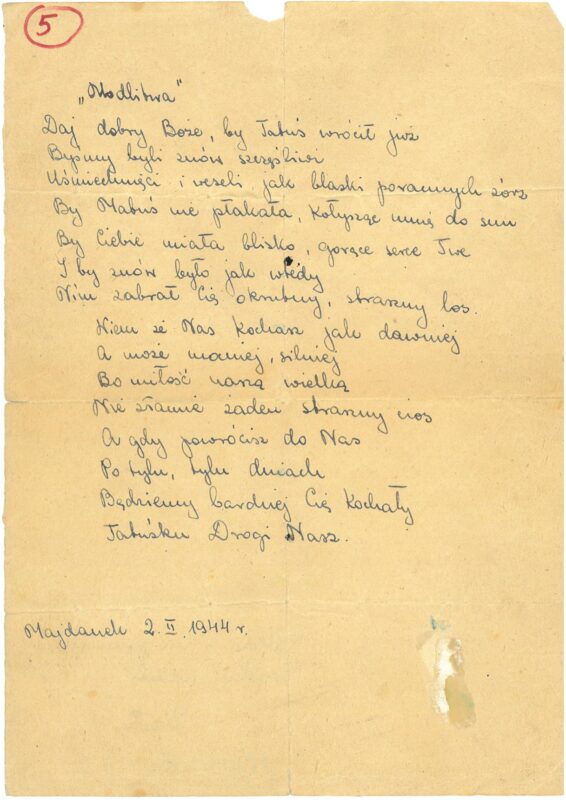 5
„Modlitwa"
Daj dobry Boże, by Tatuś wrócił już
Byśmy byli znów szczęśliwi
Uśmiechnięci i weseli, jak blaski porannych zórz
By Matuś nie płakała, Kołysząc mnię do snu
By Ciebie miała blisko, gorące serce Twe
I by znów było jak wtedy
Nim zabrał Cię okrutny, straszny los.
Wiem że Nas Kochasz jak dawniej
A może mocniej, silniej
Bo miłość naszą wielką
Nie złamie żaden straszny cios
A gdy powrócisz do Nas
Po tylu, tylu dniach
Będziemy bardziej Cię Kochały
Tatuśku Drogi Nasz.
Majdanek 2.II.1944 r.